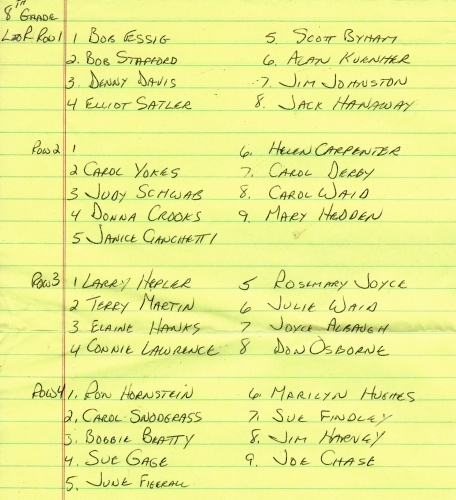 8TH GRADE
L TO R ROW 1 1 BOB ESSIG 5. SCOTT BYHAM
2. BOB STAFFORD 6. ALAN KURNHER
3. DENNY DAVIS 7. JIM JOHNSTON
4 ELLIOT SATLER 8. JACK HANAWAY
ROW 2 1 6. HELEN CARPENTER
2 CAROL YOKES 7. CAROL DERBY
3 JUDY SCHWAB 8. CAROL WAID
4 DONNA CROOKS 9. MARY HEDDEN
5 JANICE GIANCHETTI
ROW 3 1 LARRY HEPLER 5 ROSEMARY JOYCE
2 TERRY MARTIN 6 JULIE WAID
3 ELAINE HANKS 7 JOYCE ALBAUGH
4 CONNIE LAWRENCE 8 DON OSBORNE
ROW 4 1. RON HORNSTEIN 6. MARILYN HUGHES
2. CAROL SNODGRASS 7. SUE FINDLEY
3. BOBBIE BEATTY 8. JIM HARVEY
4. SUE GAGE 9. JOE CHASE
5. JUNE